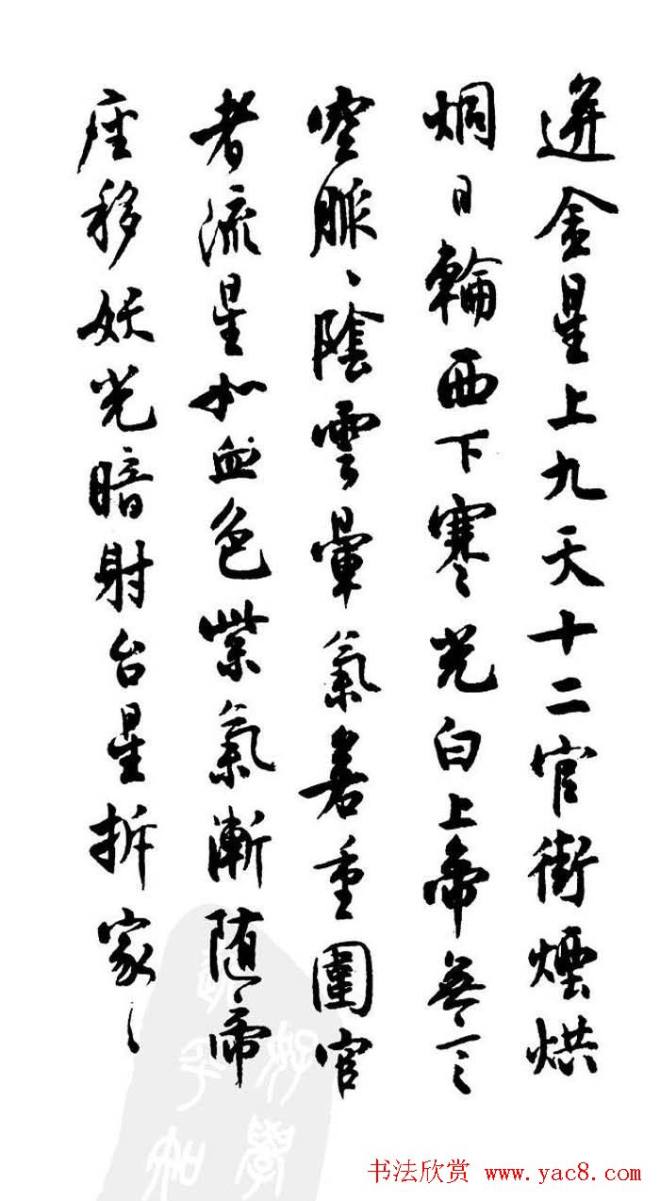 迸金星上九天十二官街煙烘
烔日輪西下寒光白上帝無言
空脈〻陰雲暈氣若重圍宦
者流星如血色紫氣漸随帝
座移妖光暗射台星拆家〻
书法欣赏 www.yac8.com